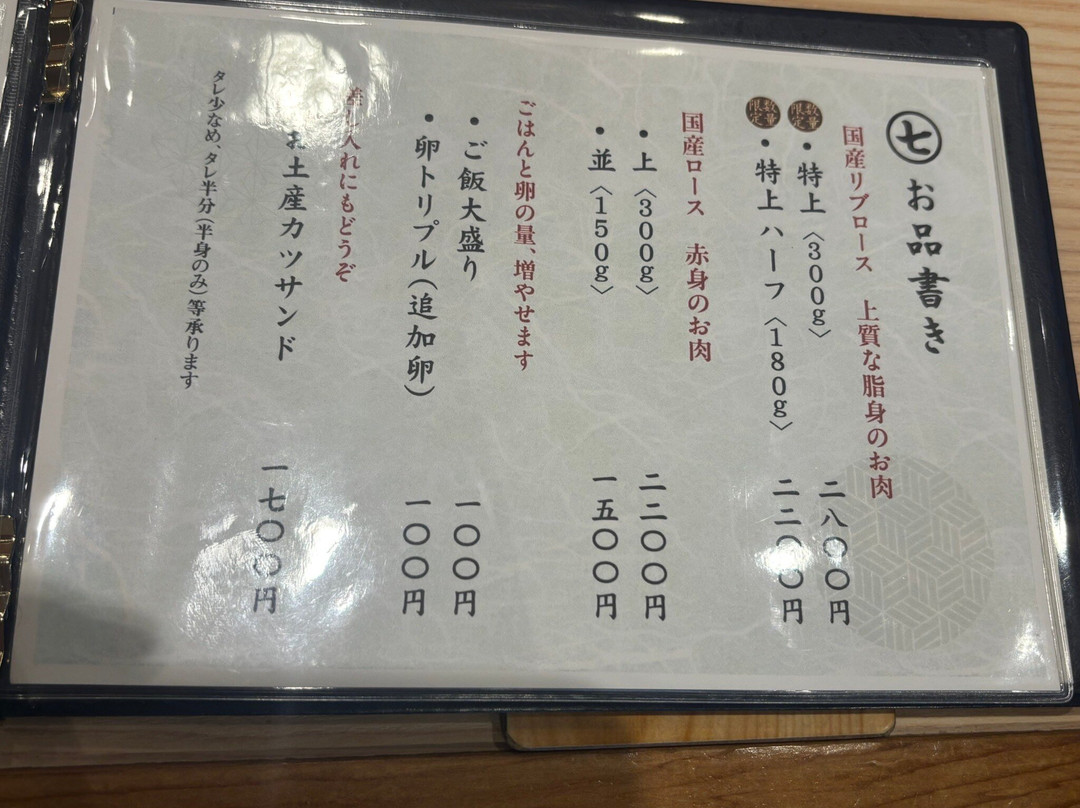 七 お品書き
国産リブロース 上質な脂身のお肉
数量限定
・特上〈300g〉 二八〇〇円
数量限定
・特上ハーフ〈180g〉 二二〇〇円
国産ロース 赤身のお肉
・上〈300g〉 二二〇〇円
・並〈150g〉 一五〇〇円
ごはんと卵の量、増やせます
・ご飯大盛り 一〇〇円
・卵トリプル(追加卵) 一〇〇円
差し入れにもどうぞ
お土産カツサンド 一七〇〇円
タレ少なめ、タレ半分(半身のみ)等承ります